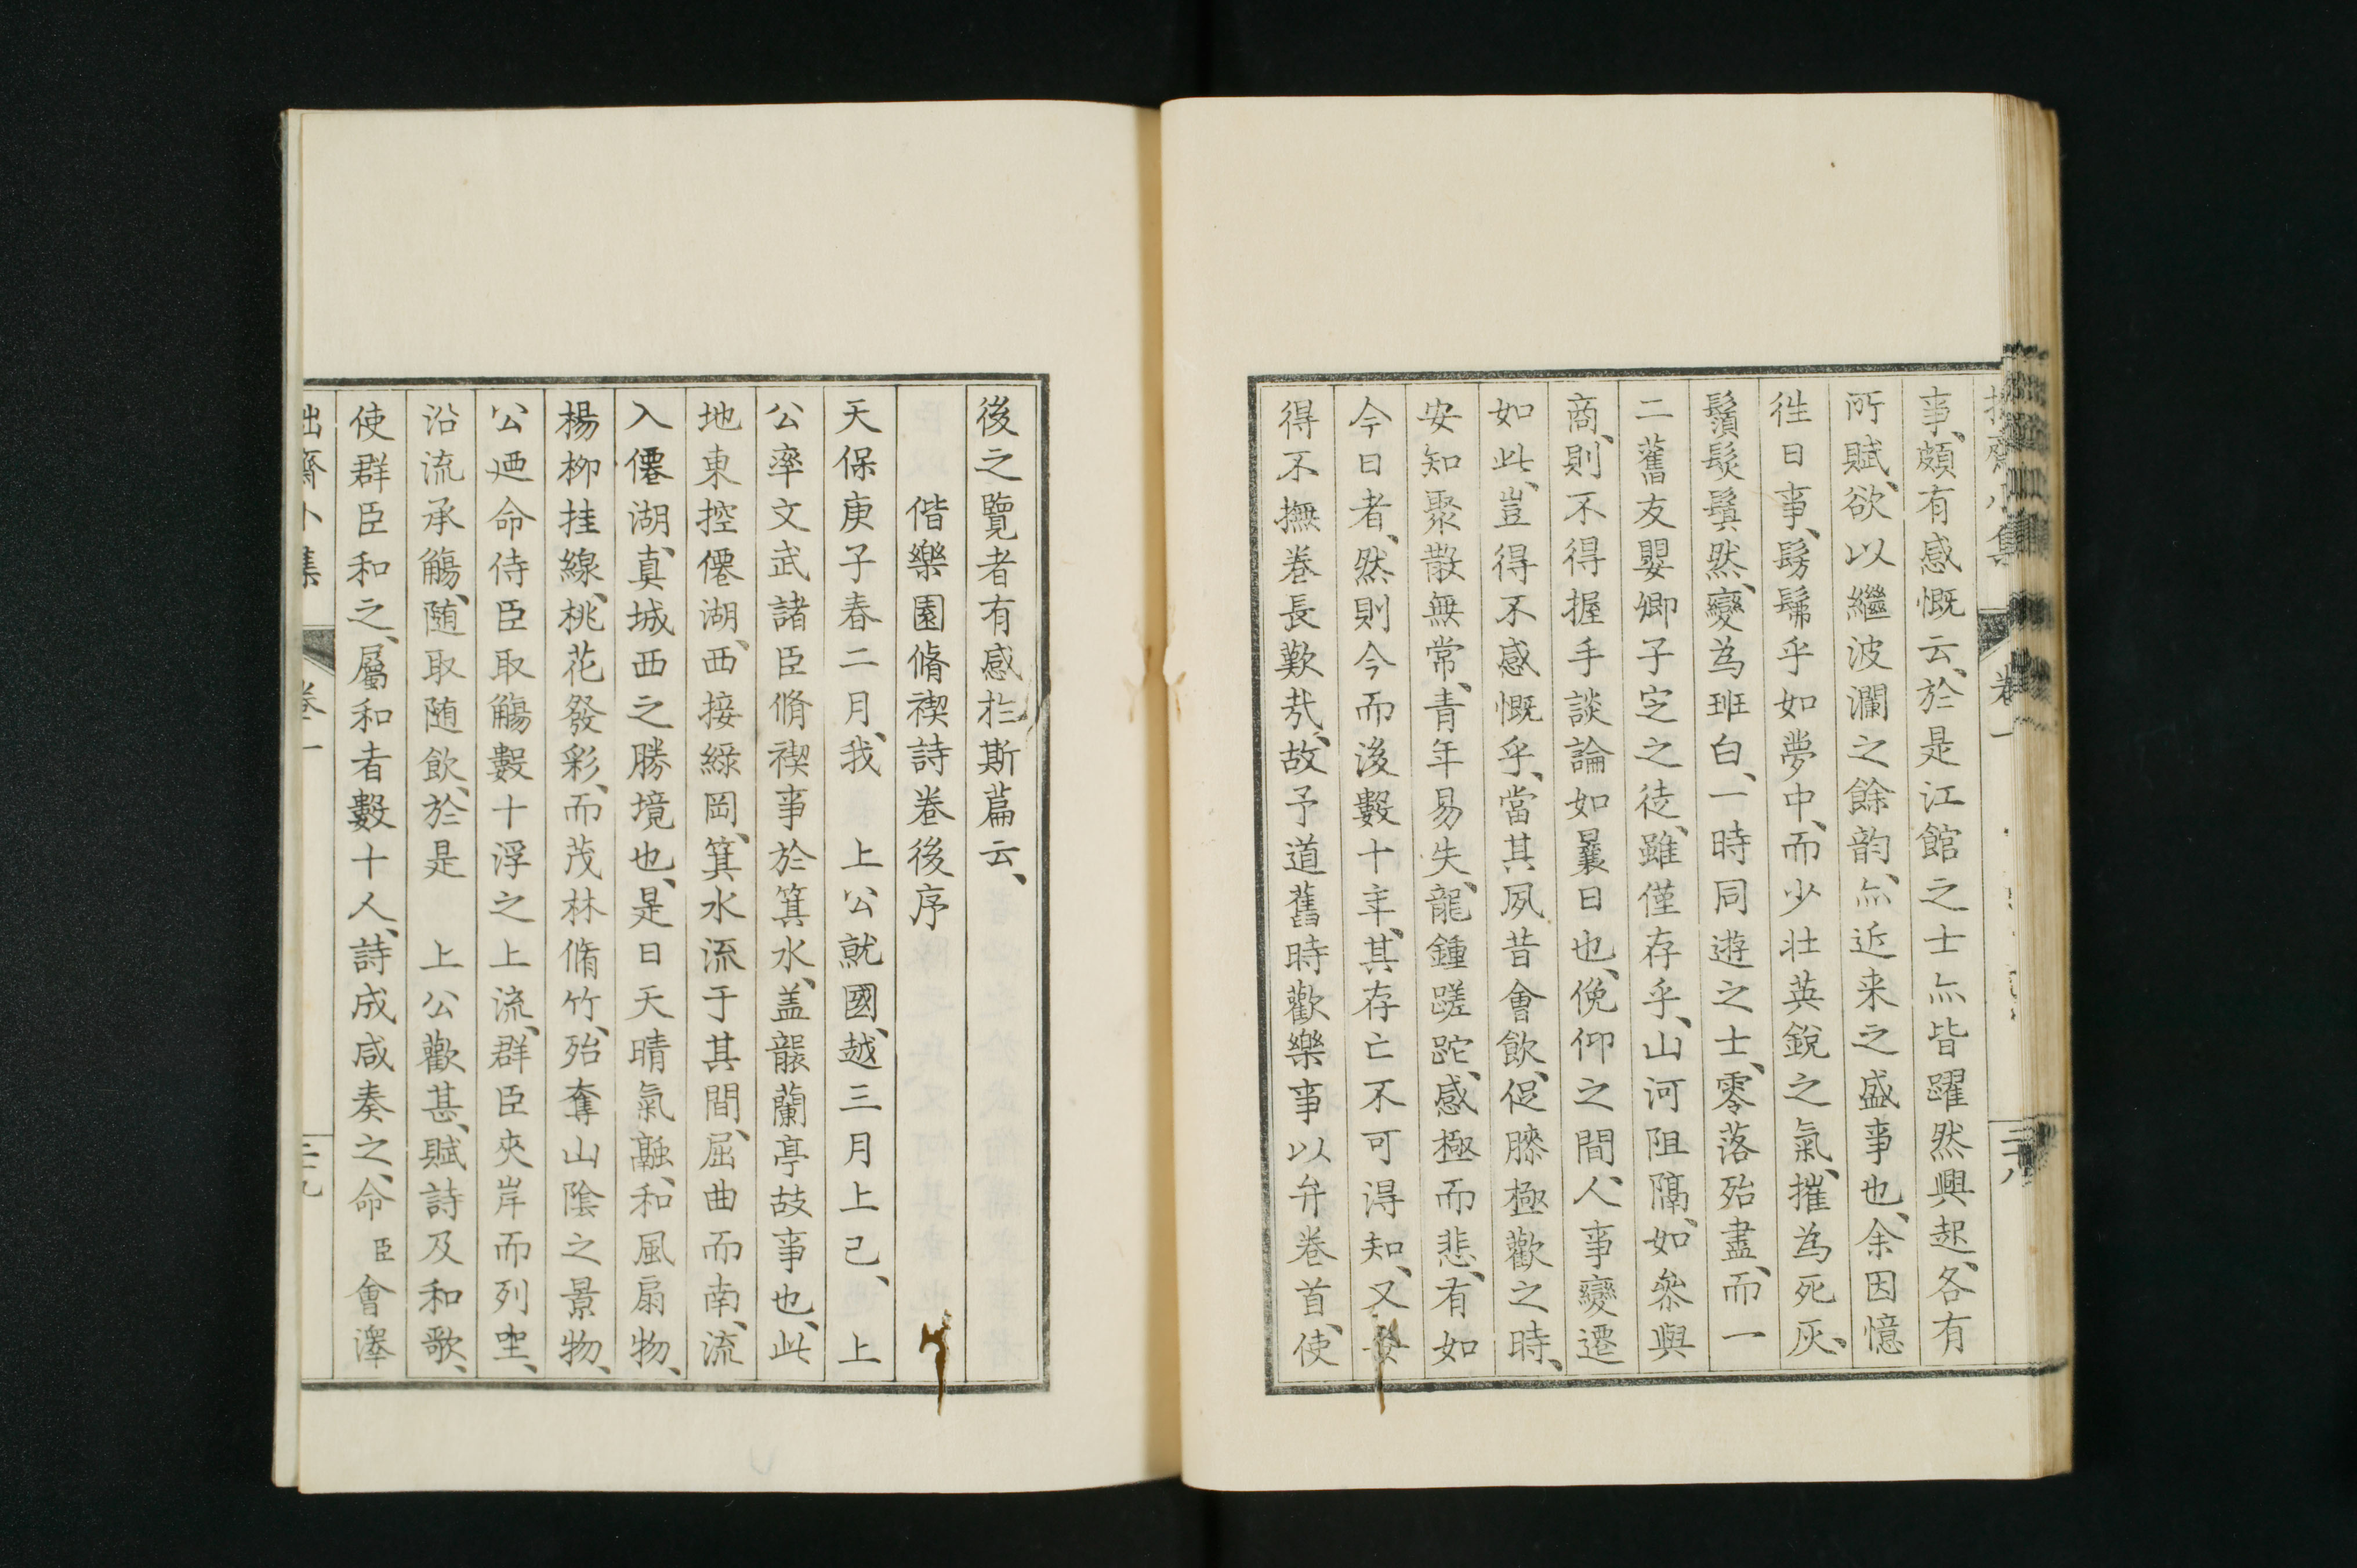 事、頗有感慨云、於是江館之士亦皆躍然興起、各有
所賦、欲以繼波瀾之餘韵、亦近来之盛事也、余因憶
徃日事、髣髴乎如夢中、而少壮英銳之氣、摧為死灰、
鬚髮鬒然、變為班白、一時同遊之士、零落殆盡、而一
二舊友嬰卿子定之徒、雖僅存乎、山河阻隔、如叅與
商、則不得握手談論如曩日也、俛仰之間、人事變遷
如此、豈得不感慨乎、當其夙昔會飲、促膝極歡之時、
安知聚散無常、青年易失、龍鍾蹉跎、感極而悲、有如
今日者、然則今而後數十年、其存亡不可得知、又安
得不撫卷長歎哉、故予道舊時歡樂事以弁卷首、使
後之覽者有感於斯篇云、
偕樂園脩禊詩卷後序
天保庚子春二月、我 上公就國、越三月上己、 上
公率文武諸臣脩禊事於箕水、盖襲蘭亭故事也、此
地東控僊湖、西接綠岡、箕水流于其間、屈曲而南、流
入僊湖、真城西之勝境也、是日天晴氣融、和風扇物、
楊柳挂線、桃花發彩、而茂林脩竹、殆奪山陰之景物、
公廼命侍臣取觴數十浮之上流、群臣夾岸而列坐、
沿流承觴、随取随飲、於是 上公歡甚、賦詩及和歌、
使群臣和之、屬和者數十人、詩成咸奏之、命臣會澤
拙齋小集 卷一 三十九